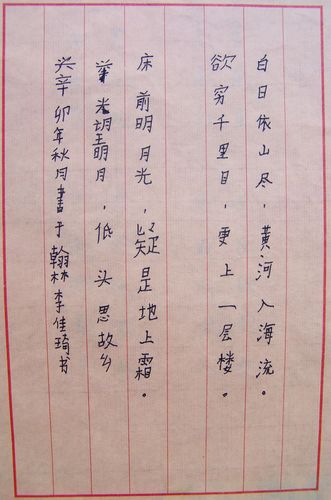 白日依山尽，黄河入海流。
欲穷千里目，更上一层楼。
床前明月光，疑是地上霜。
举头望明月，低头思故乡
辛卯年秋月书于翰林李佳琦书